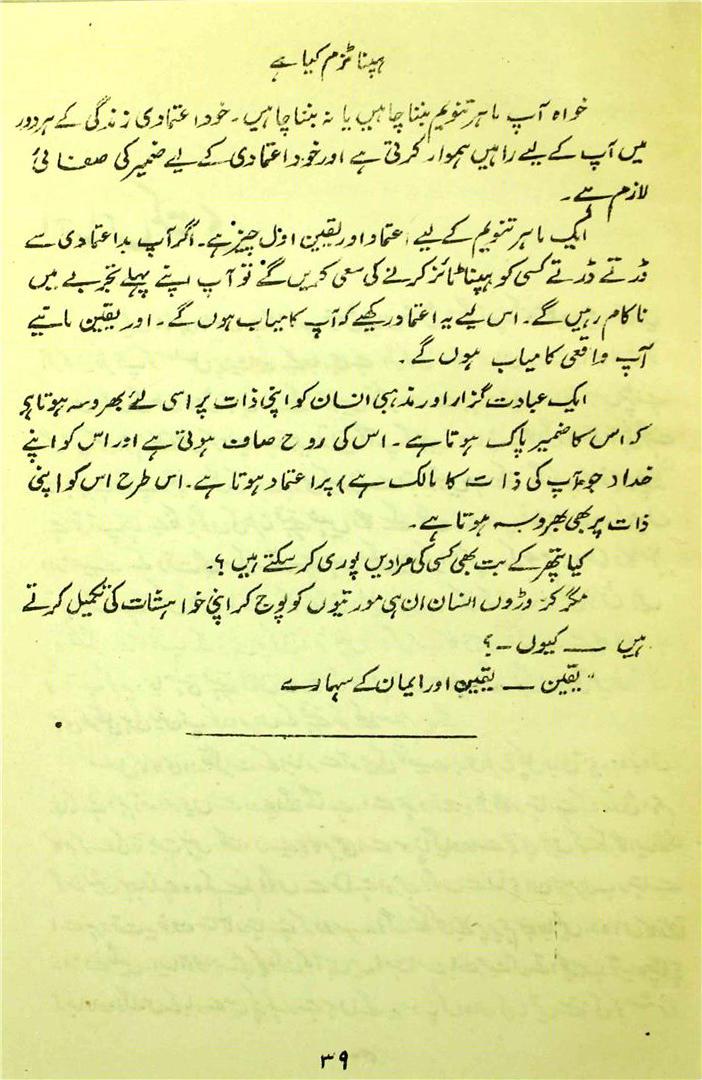 ہپناٹزم کیا ہے
خواہ آپ ماہر تنویم بننا چاہیں یا نہ بننا چاہیں۔ خود اعتمادی زندگی کے ہر دور
میں آپ کے لیے راہیں ہموار کرتی ہے اور خود اعتمادی کے لیے ضمیر کی صفائی
لازم ہے۔
ایک ماہر تنویم کے لیے اعتماد اور یقین اوّل چیز ہے۔ اگر آپ بداعتمادی سے
ڈرتے ڈرتے کسی کو ہپناٹائز کرنے کی سعی کریں گے تو آپ اپنے پہلے تجربے میں
ناکام رہیں گے۔ اس لیے یہ اعتماد رکھیے کہ آپ کامیاب ہوں گے۔ اور یقین مانیے
آپ واقعی کامیاب ہوں گے۔
ایک عبادت گزار اور مذہبی انسان کو اپنی ذات پر اسی لئے بھروسہ ہوتا ہے
کہ اس کا ضمیر پاک ہوتا ہے۔ اس کی روح صاف ہوتی ہے اور اس کو اپنے
خدا (جو آپ کی ذات کا مالک ہے) پر اعتماد ہوتا ہے۔ اس طرح اس کو اپنی
ذات پر بھی بھروسہ ہوتا ہے۔
کیا پتھر کے بت بھی کسی کی مرادیں پوری کر سکتے ہیں؟۔
مگر کروڑوں انسان ان ہی مورتیوں کو پوج کر اپنی خواہشات کی تکمیل کرتے
ہیں — کیوں -؟
"یقین — یقین اور ایمان کے سہارے
۳۹